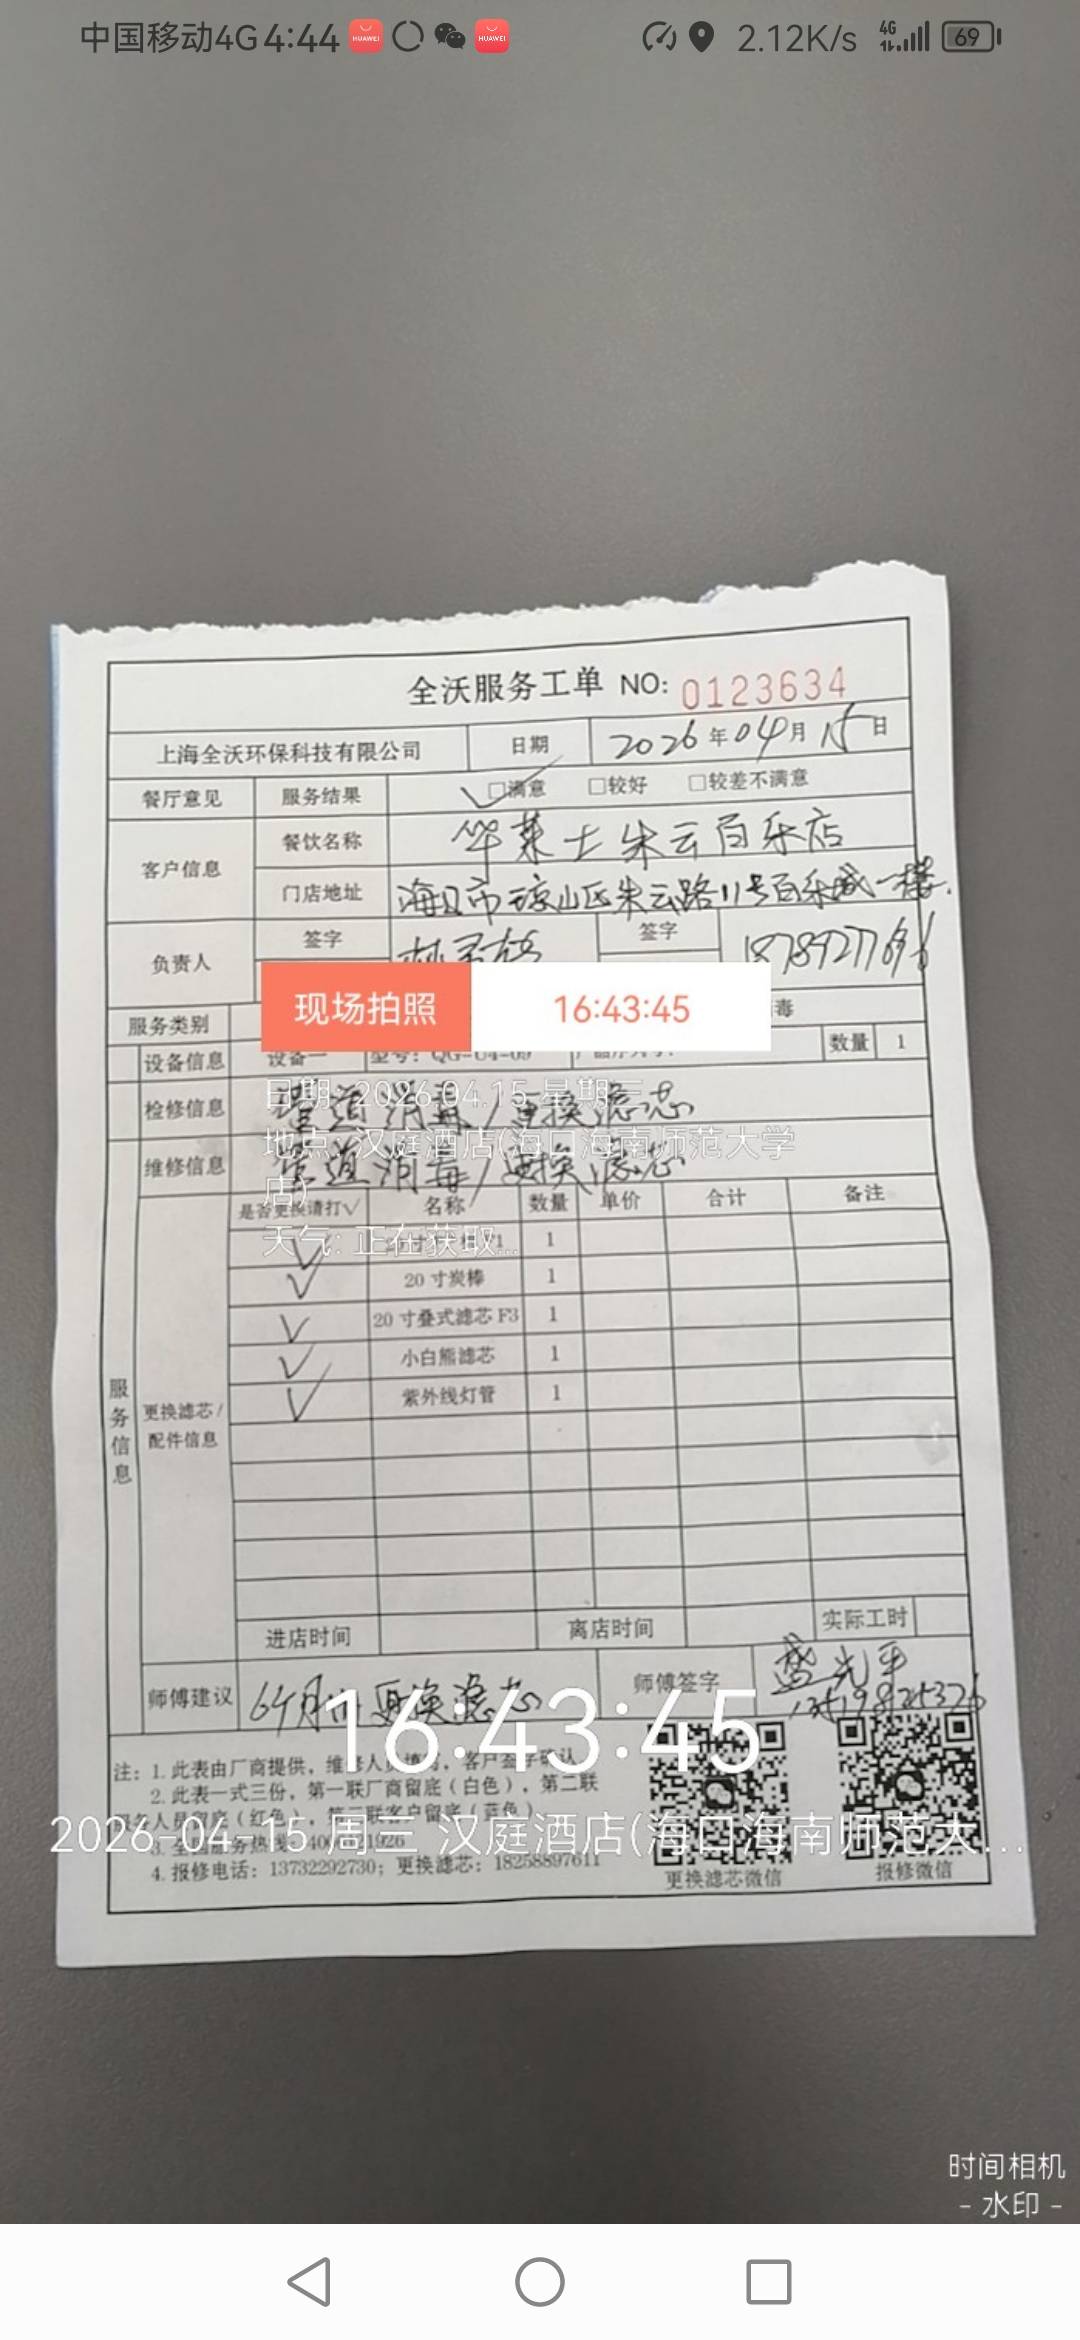 中国移动4G 4:44 HUAWEI HUAWEI 2.12K/s 4G 69
全沃服务工单 NO: 0123634
上海全沃环保科技有限公司 日期 2026年04月15日
餐厅意见 服务结果 □满意 □较好 □较差不满意
客户信息 餐饮名称 华莱士朱云百乐店
门店地址 海口市琼山区朱云路11号百乐城一楼.
负责人 签字 签字
现场拍照 16:43:45
服务类别 毒
设备信息 设备一 型号: QG-U4-09 数量 1
日期: 2026.04.15 星期三
检修信息 管道消毒/更换滤芯
地点: 汉庭酒店(海口海南师范大学
店)
维修信息 管道消毒/更换滤芯
是否更换请打√ 名称 数量 单价 合计 备注
天气: 正在获取...
√ 1
√ 20寸炭棒 1
√ 20寸叠式滤芯F3 1
√ 小白熊滤芯 1
√ 紫外线灯管 1
服务信息
更换滤芯/
配件信息
进店时间 离店时间 实际工时
师傅建议 更换滤芯 师傅签字 盛光平
16:43:45
注: 1.此表由厂商提供,维修人员填写,客户签字确认
2.此表一式三份,第一联厂商留底(白色),第二联
服务人员留底(红色),第三联客户留底(蓝色)
2026-04-15 周三 汉庭酒店(海口海南师范大...
3.全国服务热线:
4.报修电话: 13732292730; 更换滤芯: 18258897611
更换滤芯微信 报修微信
时间相机
- 水印 -